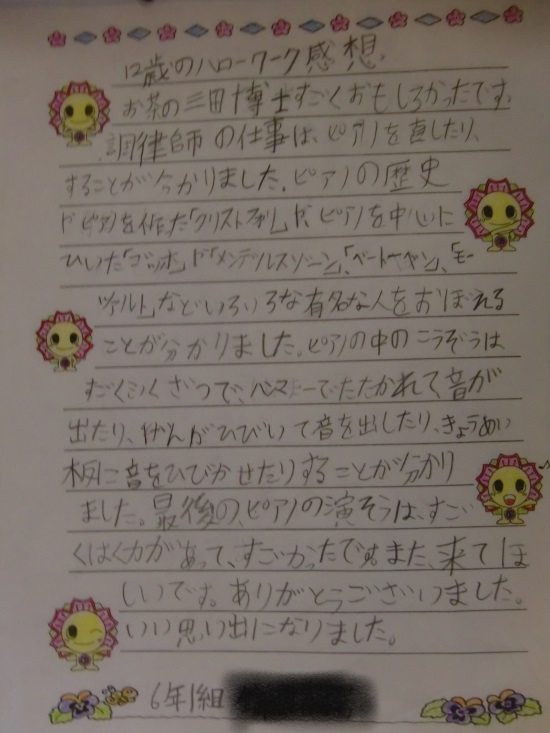 12歳のハローワーク感想
お茶の三田博士すごくおもしろかったです。
調律師の仕事は、ピアノを直したり、
することが分かりました。ピアノの歴史
ピアノを作った「クリストフォリ」ピアノを中心に
ひいた「メンデルスゾーン」、「ベートーヤン」、「モー
ツァルト」などいろいろな有名な人をおぼえる
ことが分かりました。ピアノの中のこうぞうは
すごくふくざつで、ハンマーでたたかれて、音が
出たり、げんがひびいて音を出したり、きょうめい
板に音をひびかせたりすることが分かり
ました。最後の、ピアノの演そうは、すご
くはく力があって、すごかったです。また、来てほ
しいです。ありがとうございました。
いい思い出になりました。
6年1組